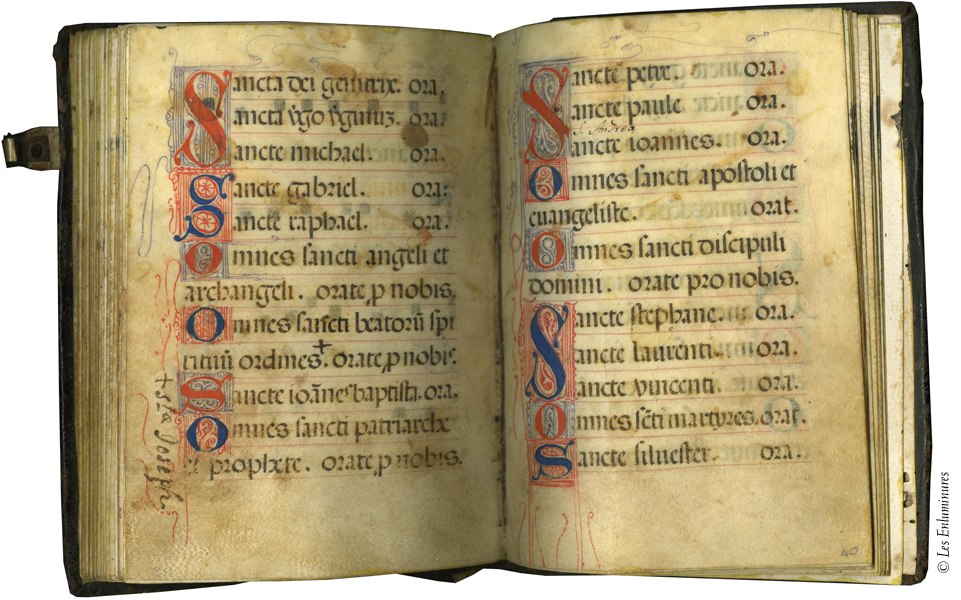 Sancta dei genitrix. ora.
Sancta v̄go v̄ginuʒ. ora.
Sancte michael. ora.
Sancte gabriel. ora.
Sancte raphael. ora.
Omnes sancti angeli et
archangeli. orate ꝓ nobis.
Omnes sancti beatoꝝ spi
rituū ordines. + orate ꝓ nobis.
Sancte ioānes baptista. ora.
Omnes sancti patriarche
et prophete. orate ꝓ nobis.
+ Sta Joseph.
Sancte petre. ora.
Sancte paule ora.
S. Andrea
Sancte ioannes. ora.
Omnes sancti apostoli et
euangeliste. orat.
Omnes sancti discipuli
domini. orate pro nobis.
Sancte stephane. ora.
Sancte laurenti. ora.
Sancte vincenti. ora.
Omnes sc̄ti martyres. orat.
Sancte siluester. ora.
40
© Les Enluminures